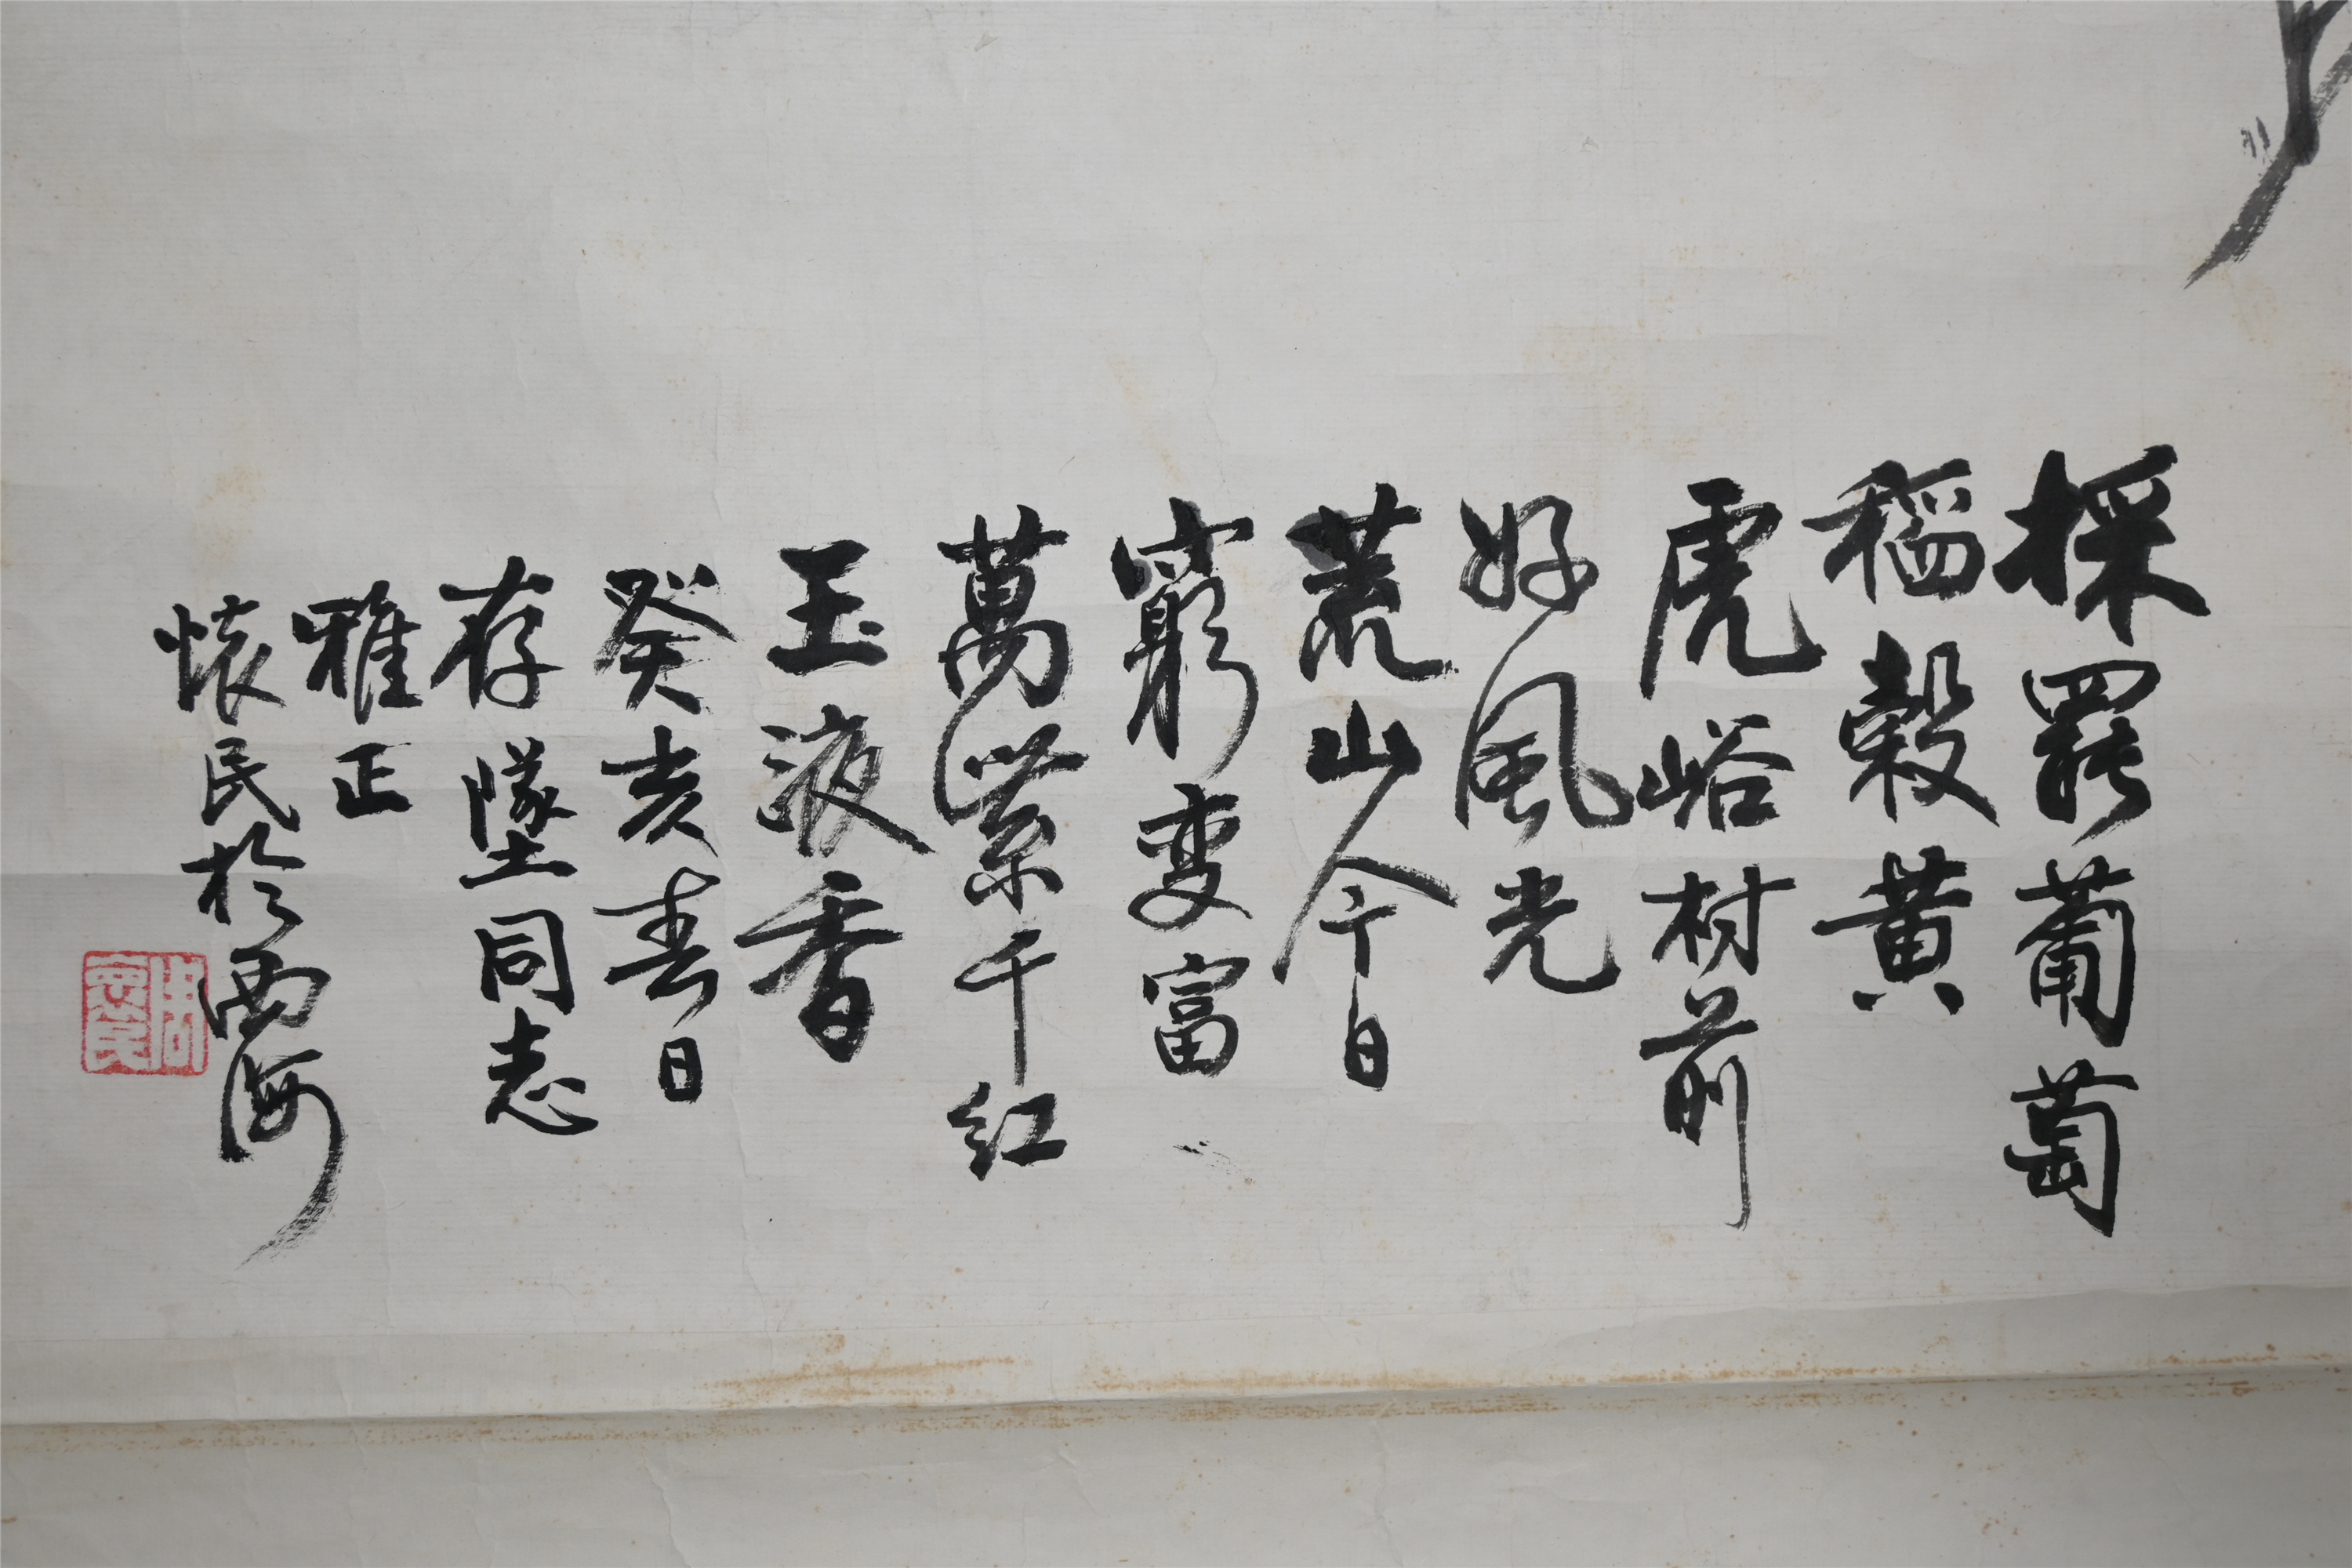 採罷葡萄
稻穀黃
虎峪村前
好風光
荒山今日
窮變富
萬紫千紅
玉液香
癸亥春日
存墜同志
雅正
懷民於西海
周懷民